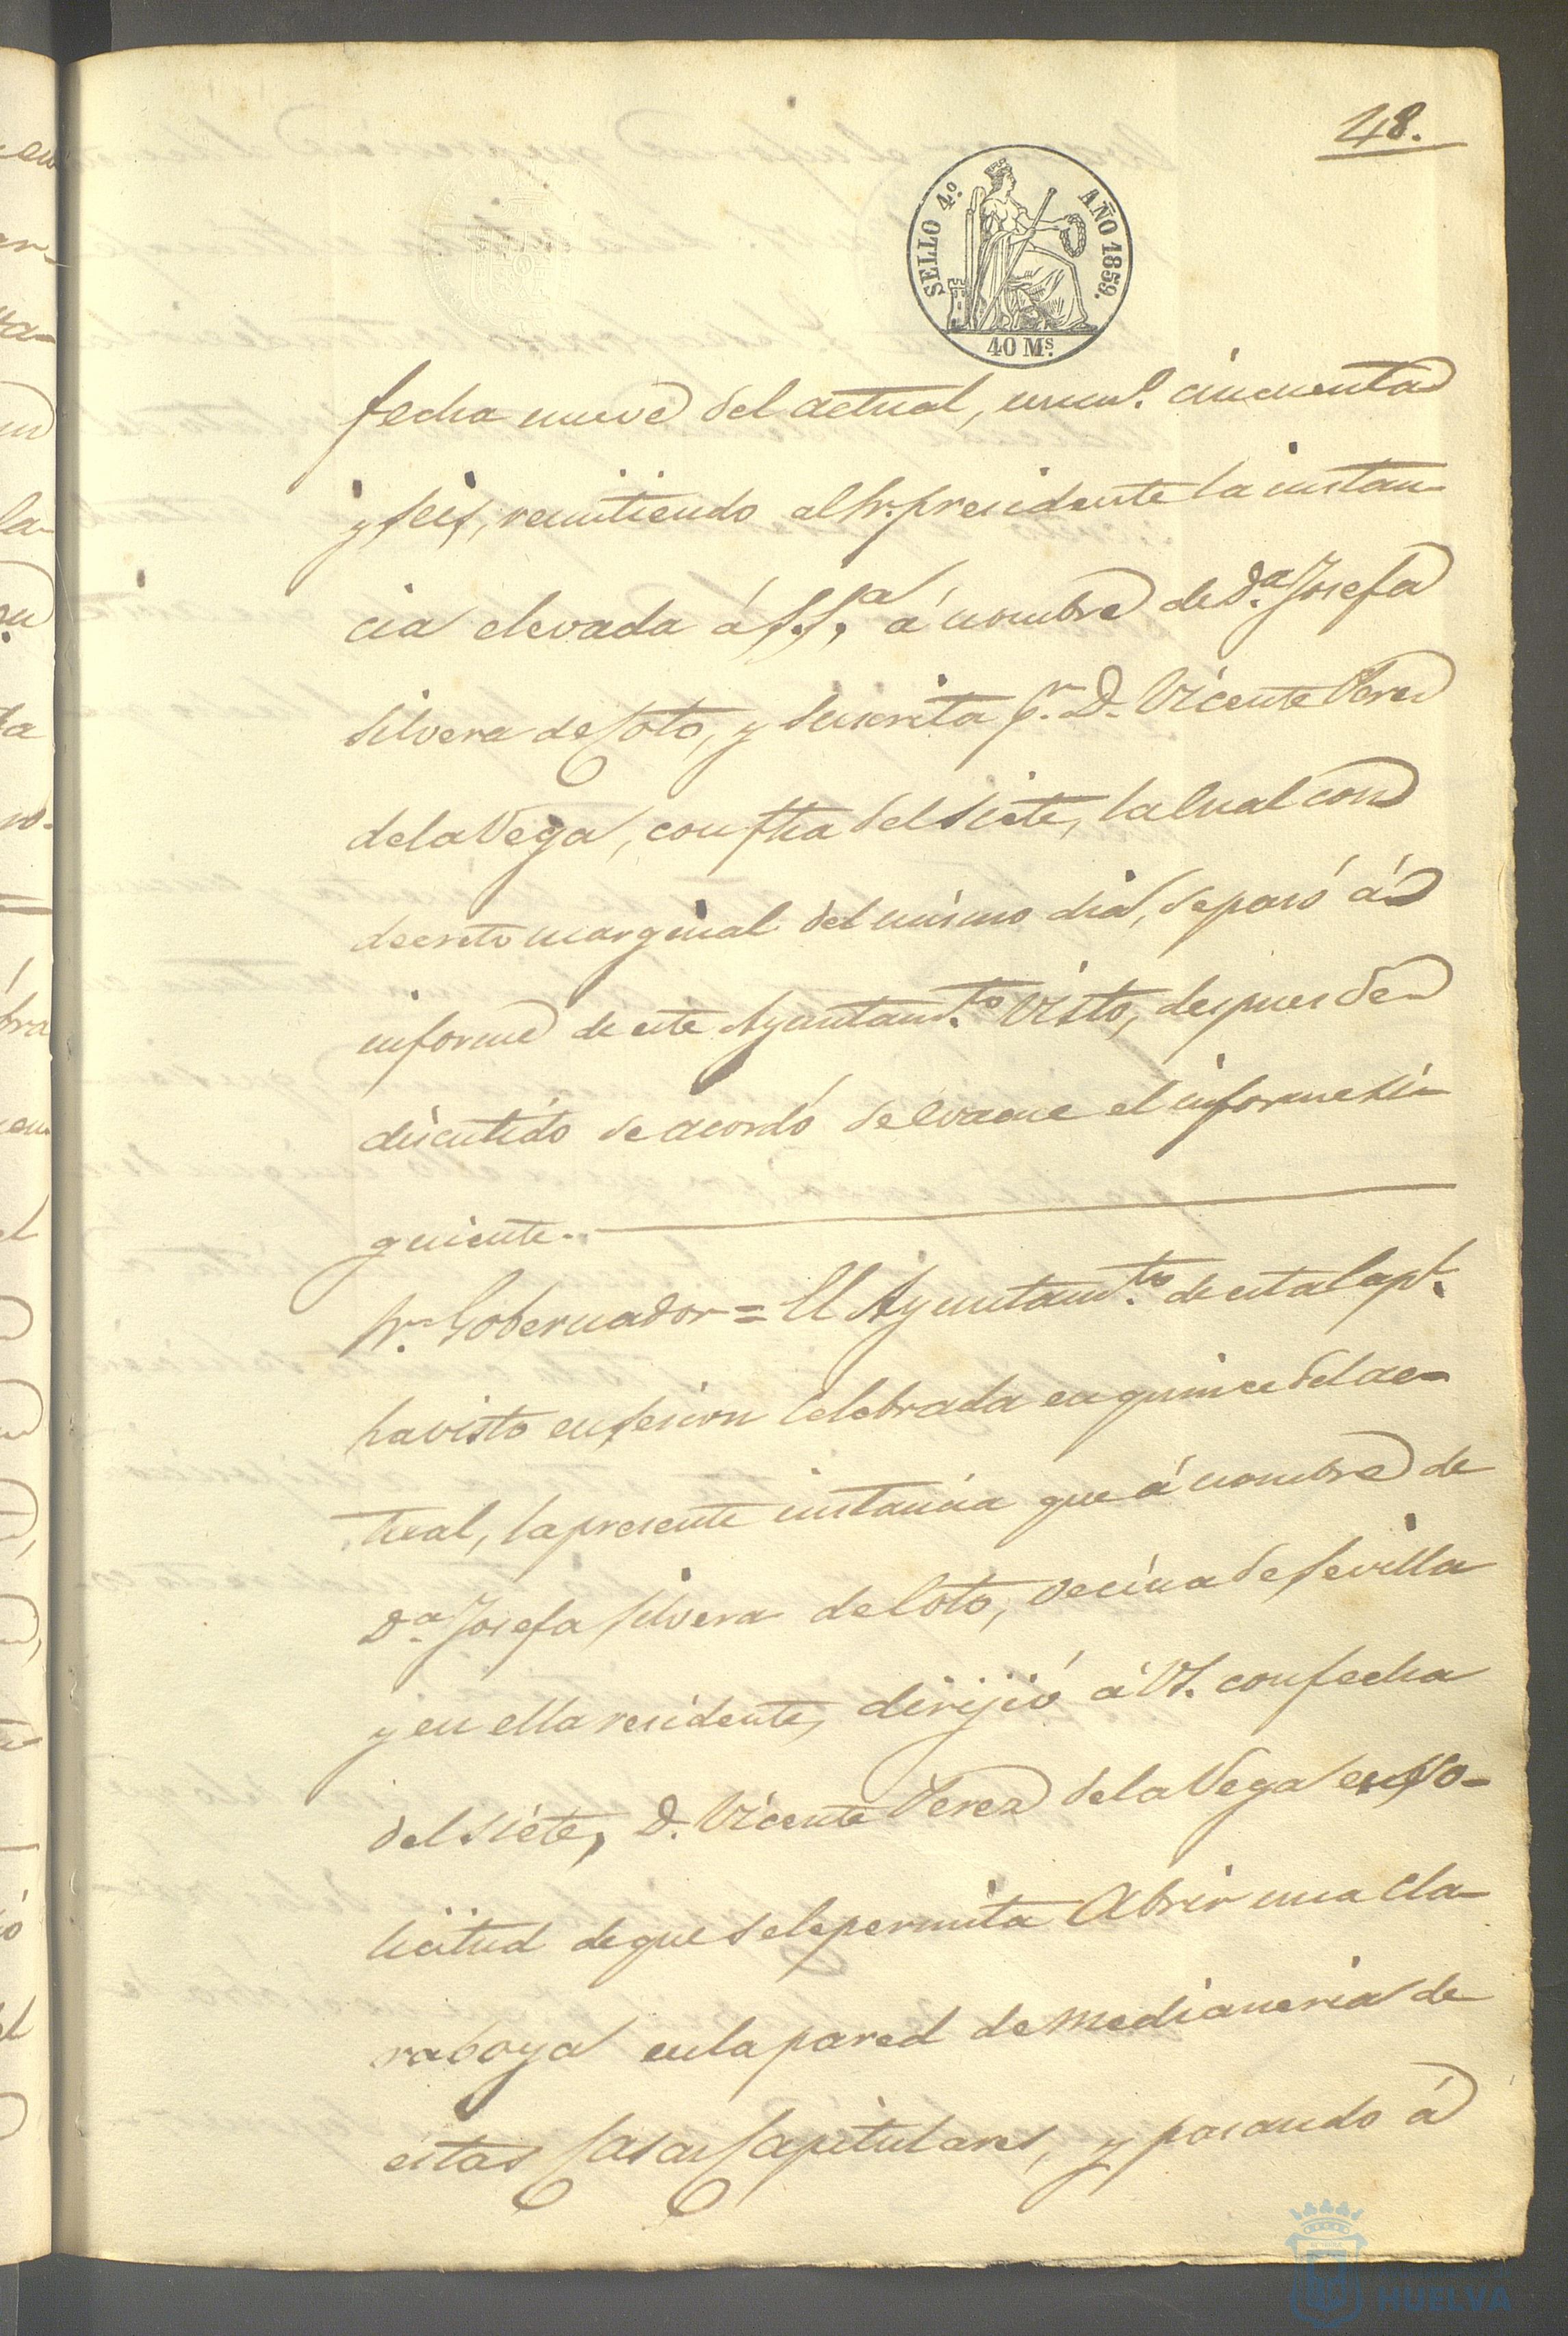 48.
SELLO 4º. AÑO 1859.
40 Ms.
fecha nueve del actual, num.º cincuenta
y seis, remitiendo al Sr. presidente la instan-
cia elevada á S.S.ª á nombre de D.ª Josefa
Silvera de Soto, y suscrita p.r D. Vicente Perez
de la Vega, con fha del siete, la cual con
decreto marginal del mismo dia, se pasó á
informe de este Ayuntam.to Visto, despues de
discutido se acordó se evacue el informe si-
guiente.
Sr. Gobernador = El Ayuntam.to de esta Capl.
ha visto en sesion celebrada en quince del ac-
tual, la presente instancia que á nombre de
D.ª Josefa Silvera de Soto, vecina de Sevilla
y en ella residente, dirijió á VS. con fecha
del siete, D. Vicente Perez de la Vega en so-
licitud de que se le permita Abrir una cla-
raboya en la pared de medianeria de
estas Casas Capitulares, y pasando á
HUELVA